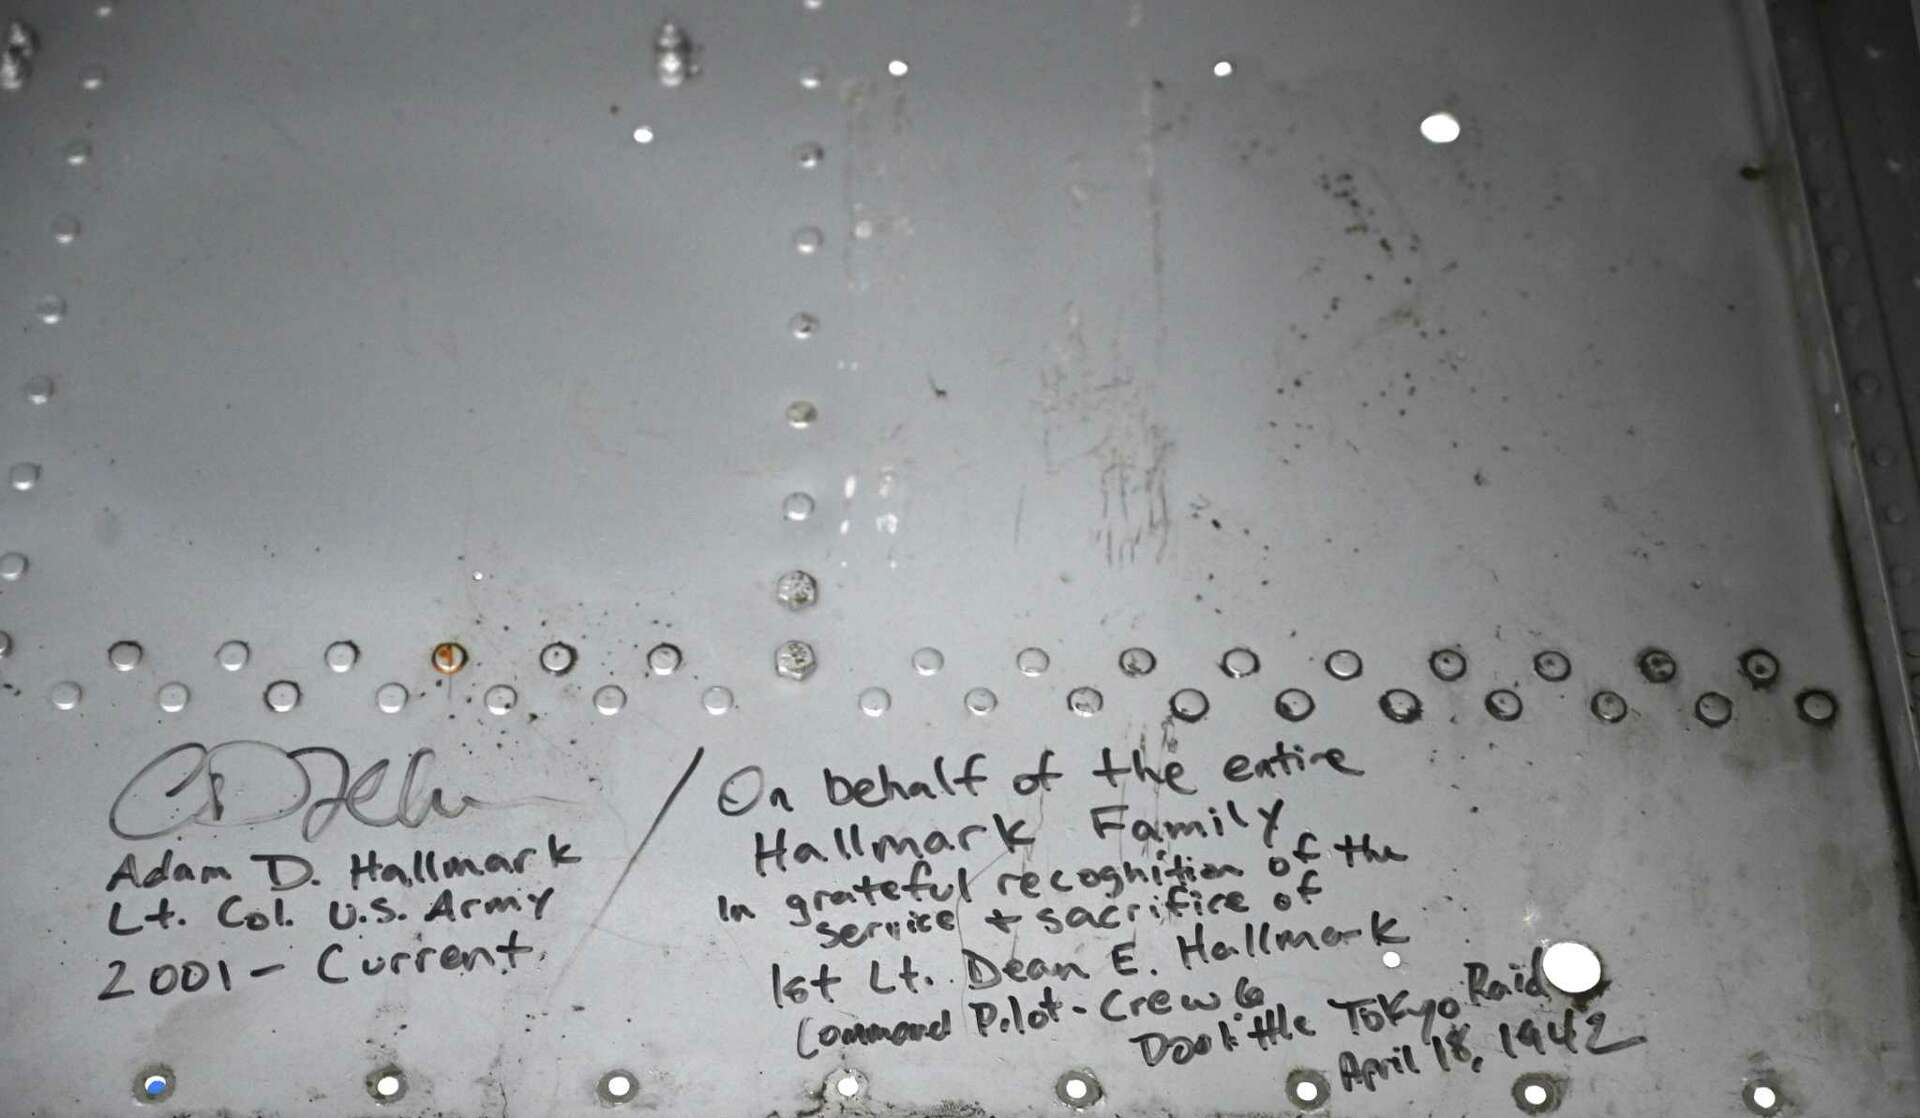 Adam D. Hallmark
Lt. Col. U.S. Army
2001 - Current
/
On behalf of the entire
Hallmark Family
In grateful recognition of the
service + sacrifice of
1st Lt. Dean E. Hallmark
Command Pilot - Crew 6
Doolittle Tokyo Raid
April 18, 1942